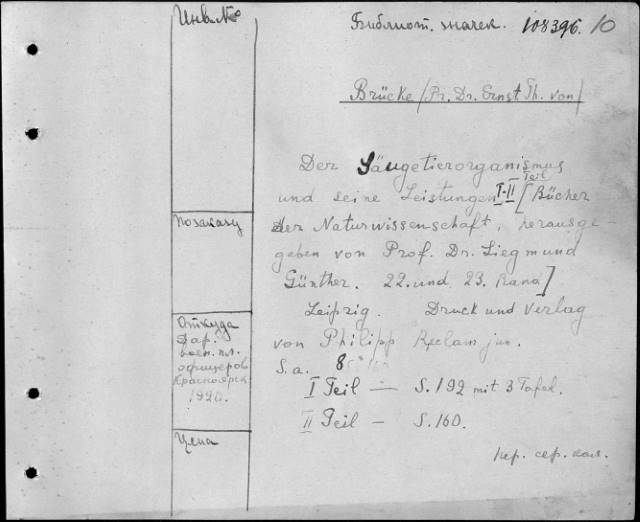 Инв. №
Библиот. значек. 108396. 10
Brücke /Pr. Dr. Ernst Th. von/
Der Säugetierorganismus
und seine Leistungen I-II Teil [Bücher
der Naturwissenschaft, herausge
geben von Prof. Dr. Siegmund
Günther. 22. und 23. Band]
Leipzig. Druck und Verlag
von Philipp Reclam jun.
S.a. 8
I Teil — S. 192 mit 3 Tafel.
II Teil — S. 160.
пер. сер. кол.
по заказу
Откуда
Дар.
воен. пл.
офицеров
Красноярск
1920.
Цена